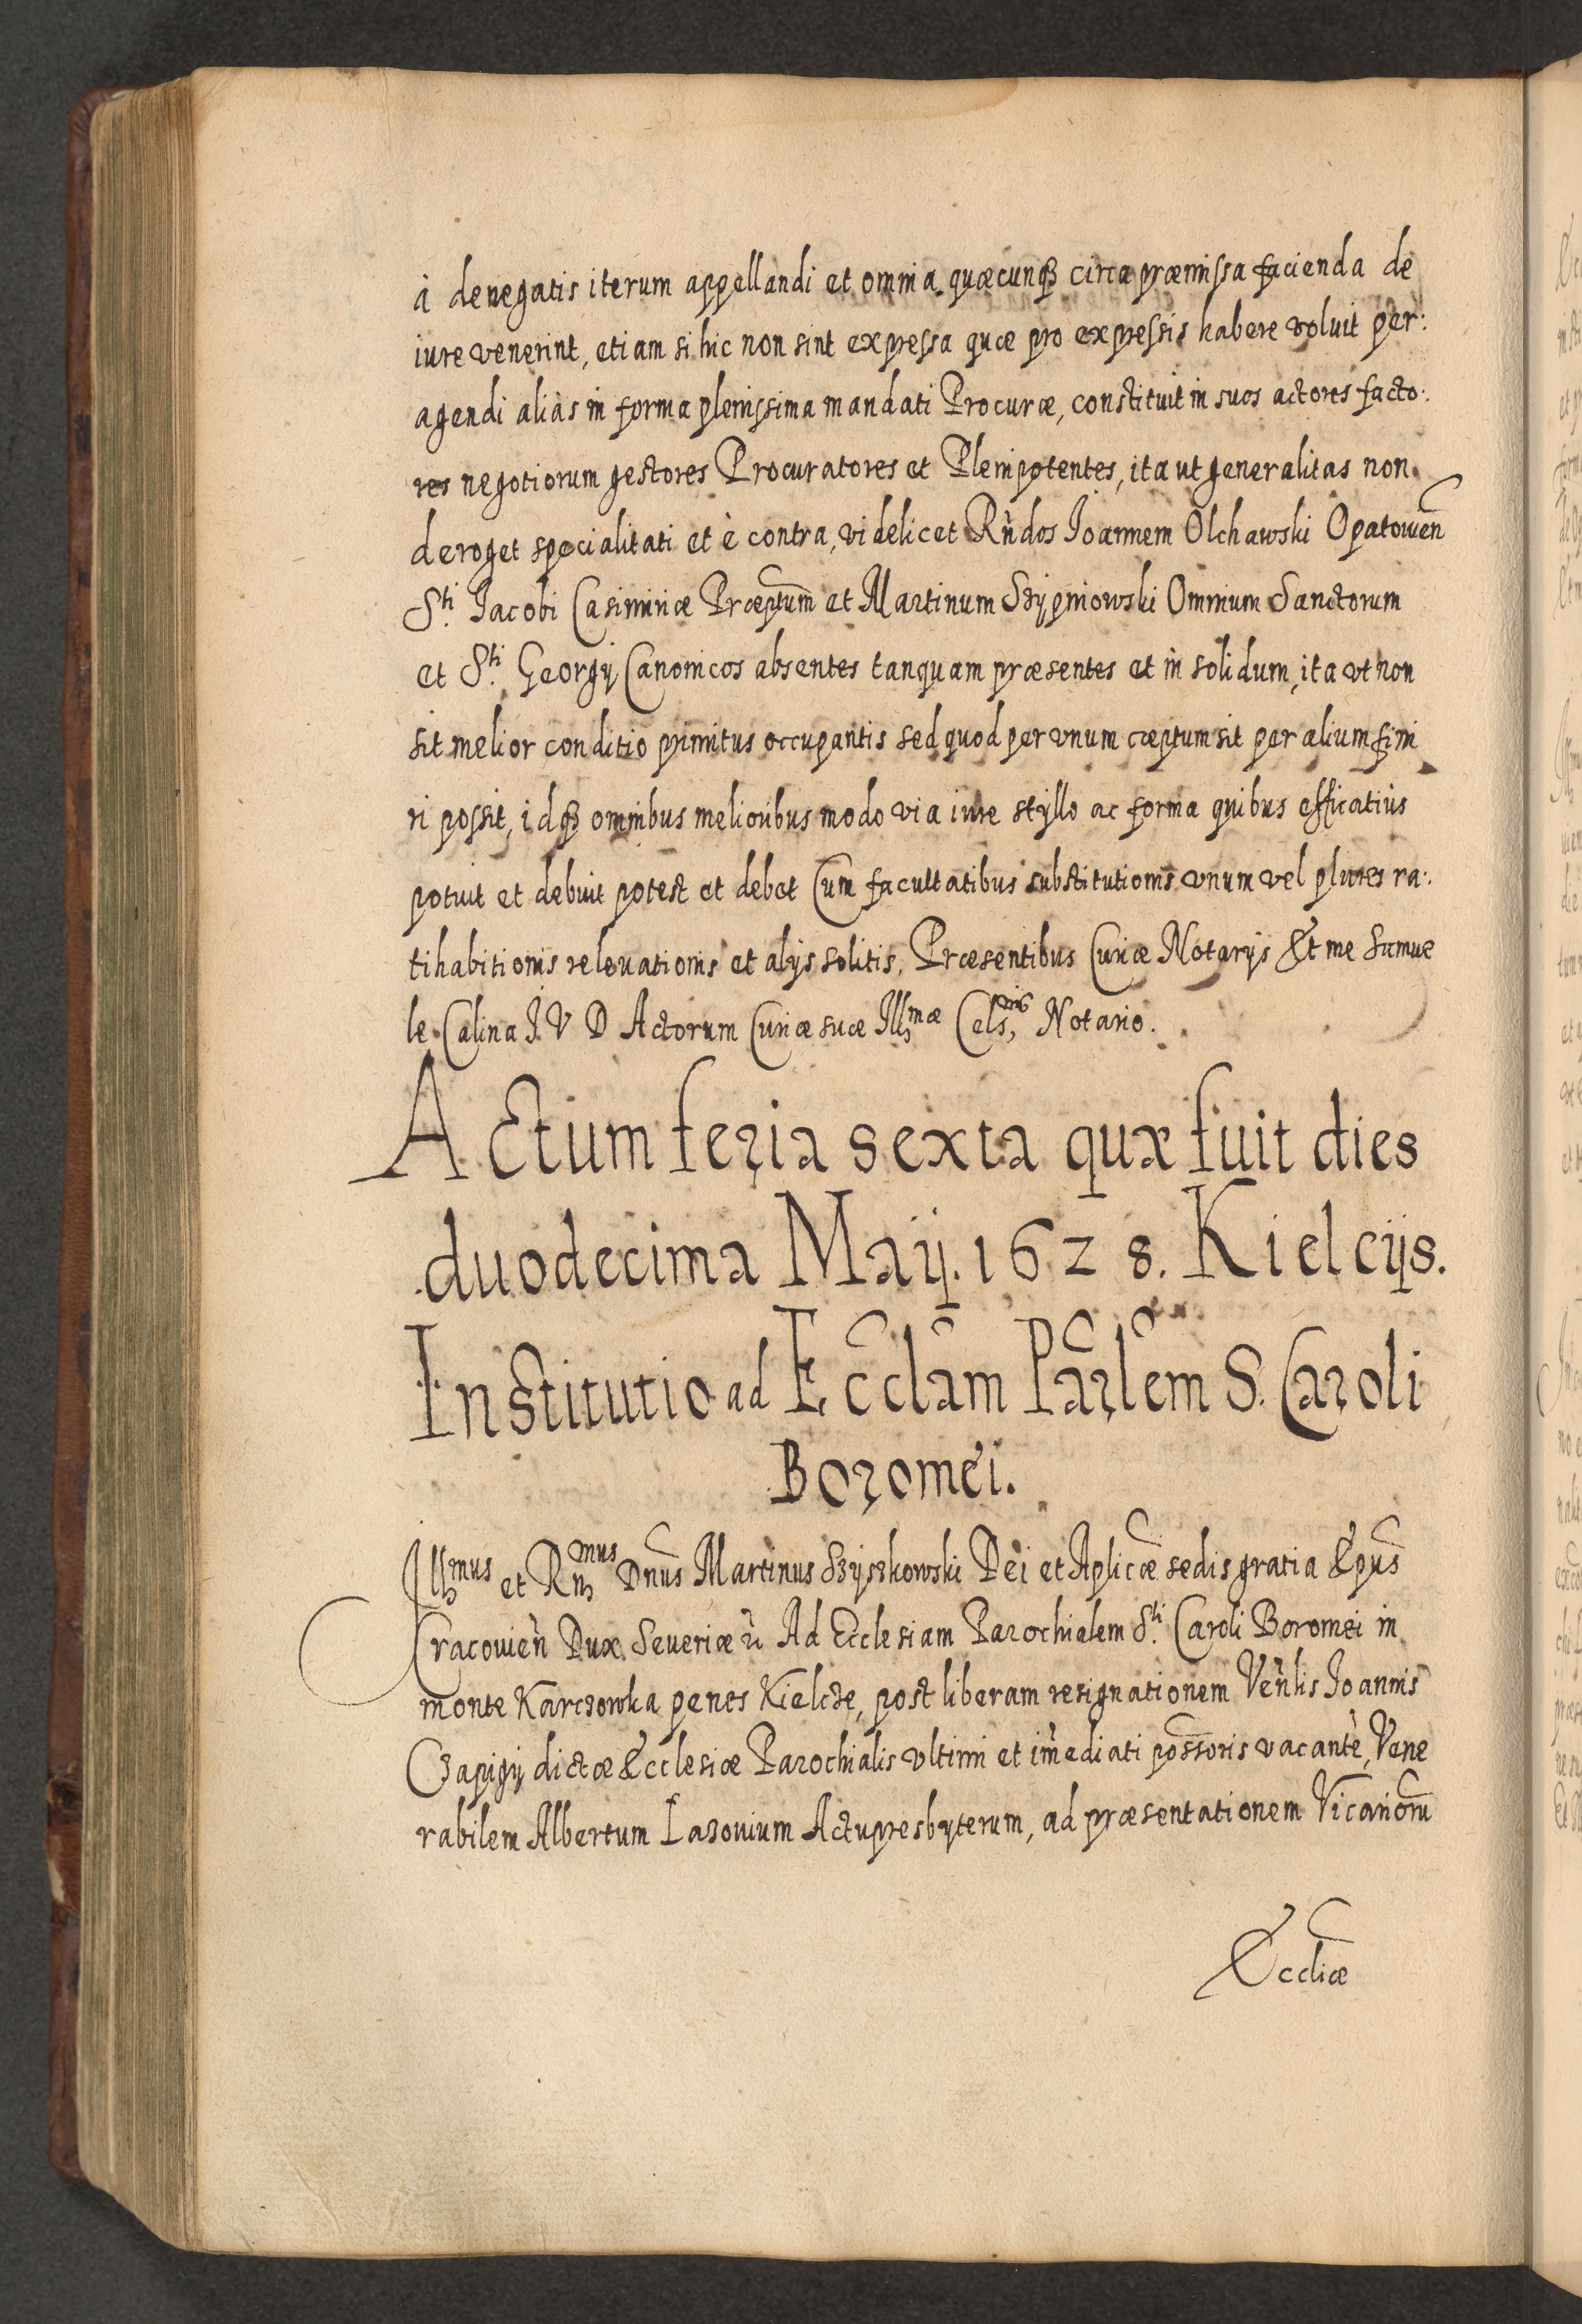 à denegatis iterum appellandi et omnia quæcunqȝ circa præmissa facienda de
iure venerint, etiam si hic non sint expressa quæ pro expressis habere voluit per:
agendi aliàs in forma plenissima mandati Procuræ, constituit in suos actores facto:
res negotiorum gestores Procuratores et Plenipotentes, ita ut generalitas non
deroget specialitati et è contra, videlicet Rñdos Joannem Olchawski Opatowień
Sti Jacobi Casimiriæ Præptum̃ et Martinum Szypniowski Omnium Sanctorum
et Sti Georgij Canonicos absentes tanquam præsentes et in solidum, ita vt non
sit melior conditio primitus occupantis sed quod per vnum cæptum sit per alium fini
ri possit, idqȝ omnibus melioribus modo via iure styllo ac forma quibus efficatiùs
potuit et debuit potest et debet Cum facultatibus substitutionis vnum vel plures ra:
tihabitionis releuationis et alijs solitis, Præsentibus Curiæ Notarijs Et me Samue
le Calina J. V D Actorum Curiæ suæ Illmæ Cels, nis Notario.
Actum feria sexta quæ fuit dies
duodecima Maij. 1628. Kielcijs.
Institutio ad Ecclãm Parlẽm S. Caroli
Boromei.
Illmus et Rmus Dnus̃ Martinus Szyszkowski Dei et Aplicæ̃ sedis gratia Epus̃
Cracouień Dux Seueriæñ Ad Ecclesiam Parochialem Sti Caroli Boromei in
monte Karczowka penes Kielcze, post liberam resignationem Veñlis Joannis
Czapigij dictæ Ecclesiæ Parochialis vltimi et im̃ediati possoris̃ vacanťe, Vene
rabilem Albertum Lazouium Actupresbyterum, ad præsentationem Vicariorũ
Eccliæ̃